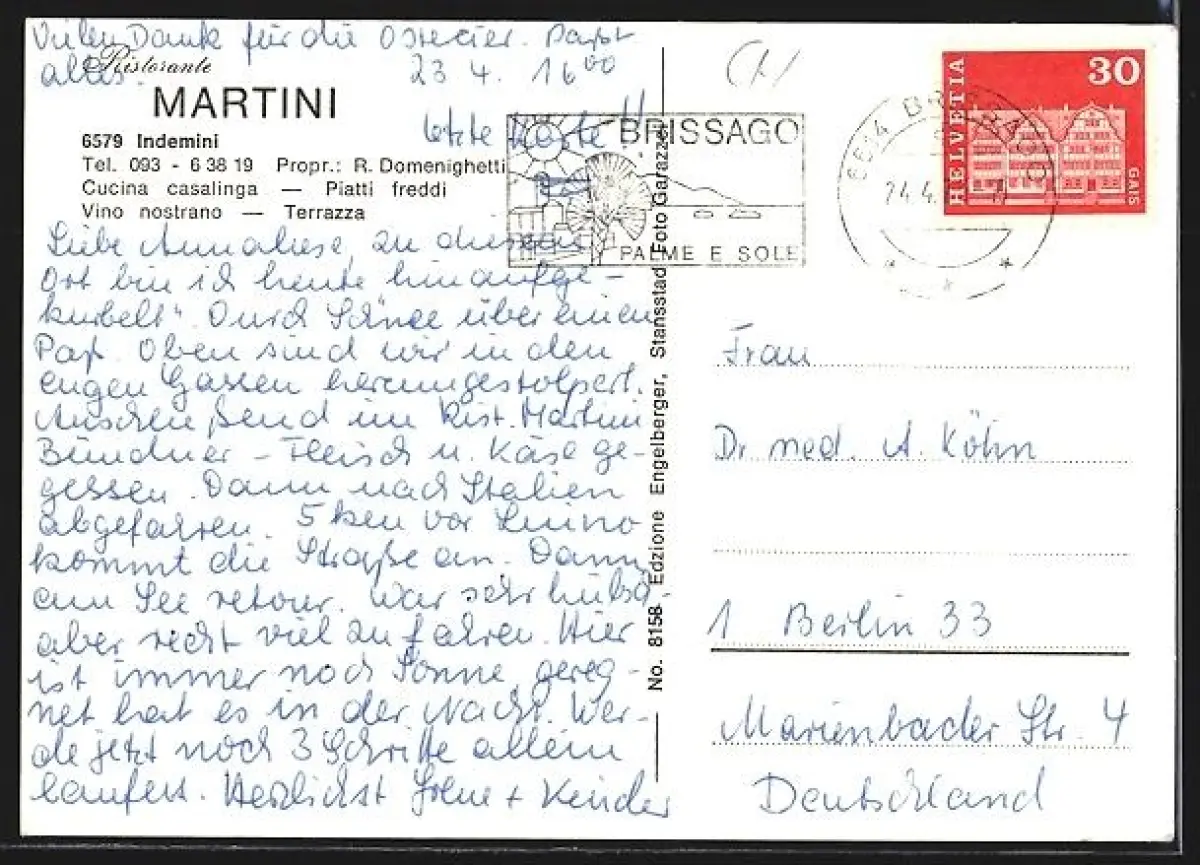 Vielen Dank für die Ostereier. Papst
alles.
23 4. 16⁰⁰
letzte Karte!!
Ristorante
MARTINI
6579 Indemini
Tel. 093 - 6 38 19 Propr.: R. Domenighetti
Cucina casalinga — Piatti freddi
Vino nostrano — Terrazza
Liebe Annaliese, zu diesem
Ort bin ich heute hinaufge-
kurbelt". Durch Schnee über einen
Paß. Oben sind wir in den
engen Gassen herumgestolpert.
Anschließend im Rist. Martini
Bündner-Fleisch u. Käse ge-
gessen. Dann nach Italien
abgefahren. 5 km vor Luino
kommt die Straße an. Dann
am See retour. War sehr hübsch
aber recht viel zu fahren. Hier
ist immer noch Sonne, gereg-
net hat es in der Nacht. Wer-
de jetzt noch 3 Schritte allein
laufen. Herzlichst + Kinder
No. 8158 Edzione Engelberger, Stansstad Foto Garazzei
BRISSAGO
PALME E SOLE
6614 BRISSAGO
24.4.
HELVETIA
30
GAIS
Frau
Dr med. A. Köhn
1 Berlin 33
Marienbader Str. 4
Deutschland